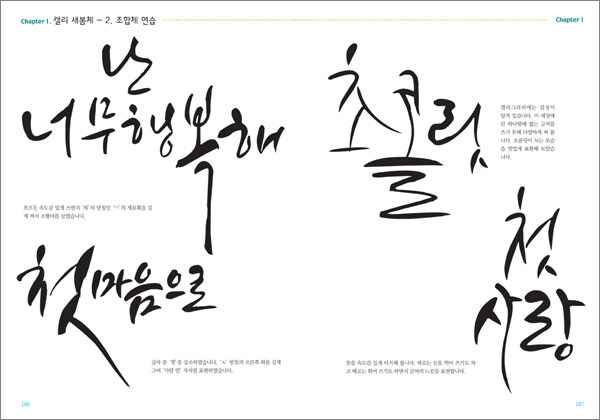 Chapter 1. 캘리 새봄체 - 2. 조합체 연습
난
너무행복해
흐르듯 속도감 있게 쓰면서 '복'의 받침인 'ㄱ'의 세로획을 길
게 써서 조형미를 살렸습니다.
첫마음으로
글자 중 '첫'을 강조하였습니다. 'ㅅ' 받침의 오른쪽 획을 길게
그어 '사람 인' 자처럼 표현하였습니다.
186
Chapter 1
초콜릿
캘리그라피에는 감성이
담겨 있습니다. 이 세상에
단 하나밖에 없는 글씨를
쓰기 위해 다양하게 써 봅
니다. 초콜릿이 녹는 모습
을 멋있게 표현해 보았습
니다.
첫
사랑
붓을 속도감 있게 터치해 봅니다. 때로는 선을 꺾어 쓰기도 하
고 때로는 휘어 쓰기도 하면서 글씨의 느낌을 표현합니다.
187